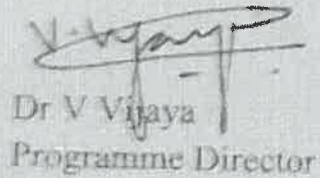 V. Vijaya
Dr V Vijaya
Programme Director